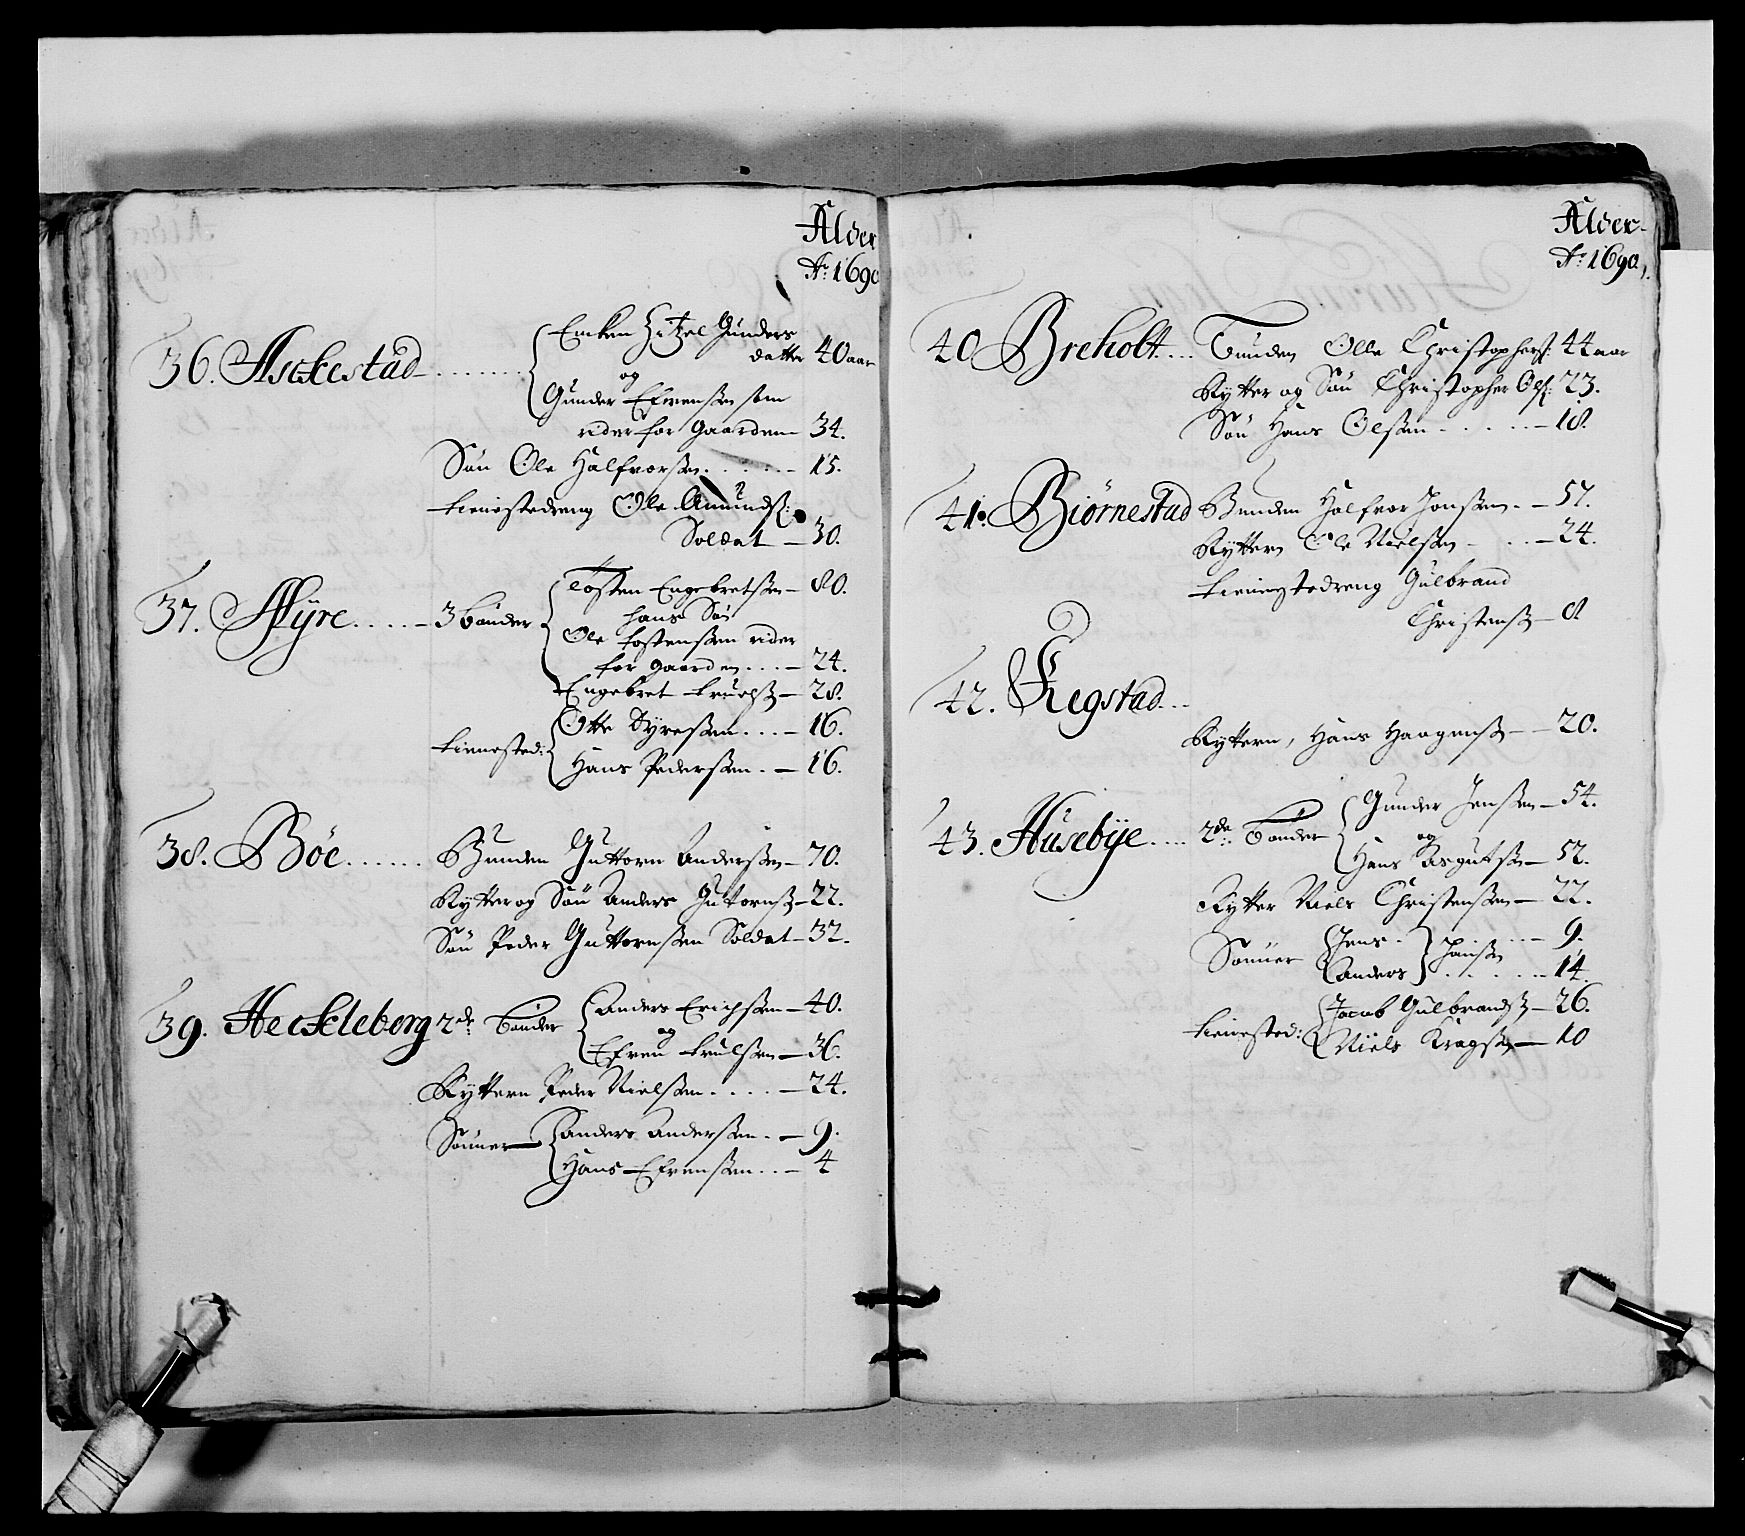 Alder
Aō 1690
36. Askestad
Encken Sitzel Gunders
datter 40 aar
og
Gunder Efvensen som
rider for Gaarden 34.
Søn Ole Halfvorsen 15.
tienistedreng Ole Amundsß:
Soldat 30.
37. Myre 3 bønder
Tosten Engebretsen 80.
hans Søn
Ole Tostensen rider
for gaarden 24.
Engebret truelsß 28.
tienested:
Otte Dyresen 16.
Hans Pedersen 16.
38. Böe Bunden Guttorn Andersen 70.
Rytter og Søn Anders Gutornsß 22.
Søn Peder Guttornsen Soldat 32.
39. Heckleberg 2de bønder
Anders Erichsen 40.
og
Efven trulsen 36.
Ryttern Peder Nielsen 24.
Sønner
Anders Andersen 9.
Hans Efvensen 4
Alder
Aō 1690.
40 Breholt Bunden Olle Christophersß: 44 aar
Rytter og Søn Christopher Olsß: 23.
Søn Hans Olsen 18.
41. Biörnestad Bunden Halfvor Jonsen 57.
Ryttern Ole Nielsen 24.
tienistedreng Gulbrand
Christensß 8
42. Regstad
Ryttern, Hans Haagensß 20.
43. Husebye 2de bønder
Gunder Jensen 54.
og
Hans Asgutsen 52.
Rytter Niels Christensen 22.
Sønner
Jens 9.
Hansen
Anders 14
tienested:
Jacob Gulbrandsß 26.
Niels Kragsß 10